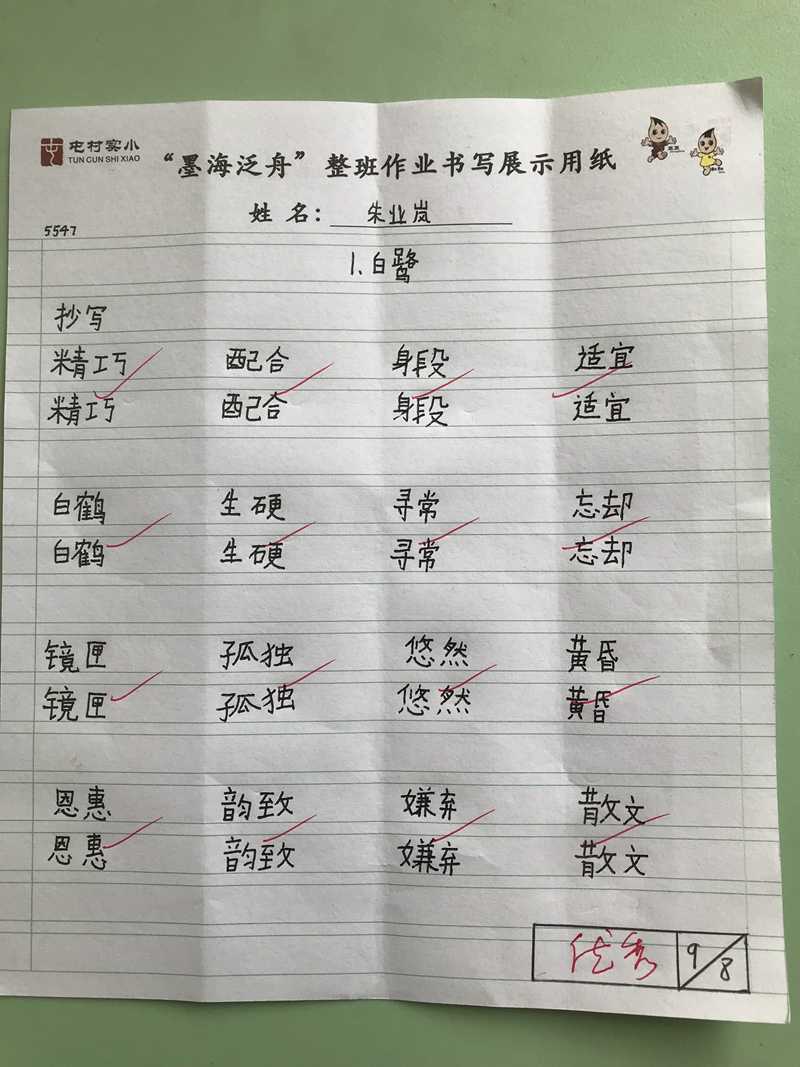 屯村实小
TUN CUN SHI XIAO
“墨海泛舟”整班作业书写展示用纸
姓名：朱业岚
5547
1.白鹭
抄写
精巧 配合 身段 适宜
精巧 配合 身段 适宜
白鹤 生硬 寻常 忘却
白鹤 生硬 寻常 忘却
镜匣 孤独 悠然 黄昏
镜匣 孤独 悠然 黄昏
恩惠 韵致 嫌弃 散文
恩惠 韵致 嫌弃 散文
优秀 9/8